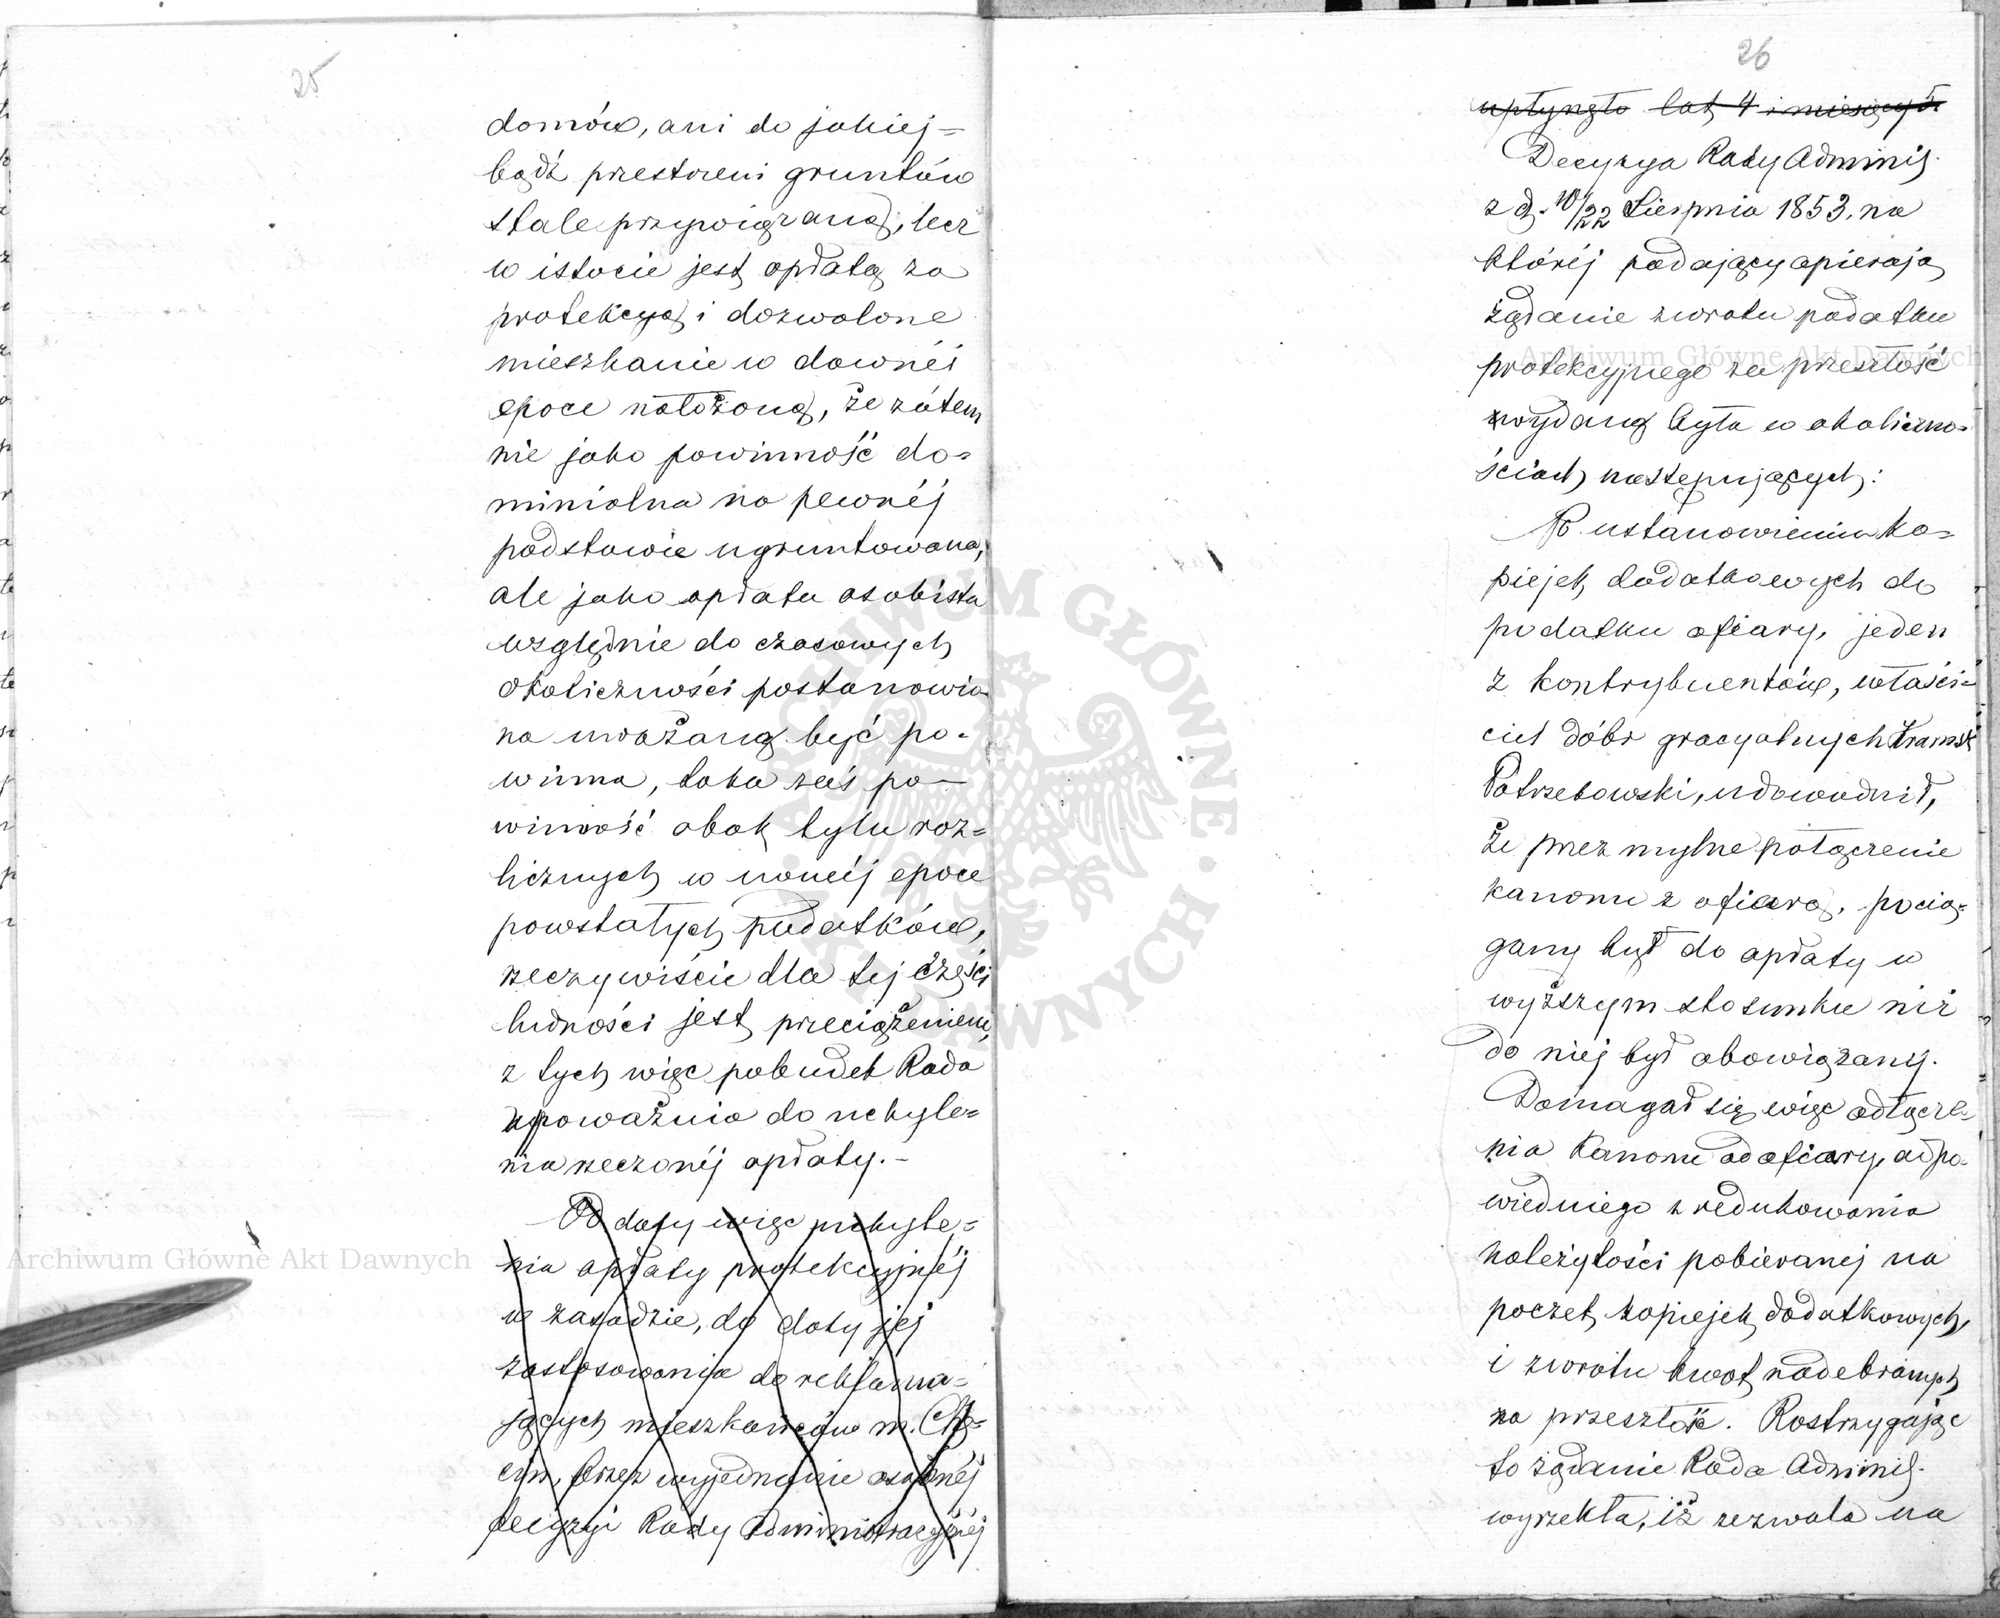 25
domów, ani do jakiej=
bądź przestrzeni gruntów
stale przywiązaną, lecz
w istocie jest opłatą za
protekcyą i dozwolone
mieszkanie w dawnéj
epoce nałożoną, że zátem
nie jako powinność do=
minialna na pewnéj
podstawie ugruntowana,
ale jako opłata osobista
względnie do czasowych
okoliczności postanowio
na uważaną być po=
winna, taka zaś po=
winność obok tylu roz=
licznych w nowéj epoce
powstałych podatków,
rzeczywiście dla tej części
ludności jest przeciążeniem,
z tych więc pobudek Rada
upoważnia do uchyle=
nia rzeczonéj opłaty.-
Od daty więc uchyle=
nia opłaty protekcyjnéj
w zasadzie, do daty jej
zastosowania do reklamu=
jących mieszkańców m. Chę=
cin, przez wyjednanie osobnéj
decyzyi Rady Administracyjnéj
26
upłynęło lat 4 i miesięcy 5.
Decyzya Rady Adminis.
z d. 10/22 Sierpnia 1853. na
któréj podający opierają
żądanie zwrotu podatku
protekcyjnego za przeszłość
wydaną była w okoliczno=
ściach następujących:
Po ustanowieniu ko=
piejek dodatkowych do
podatku ofiary, jeden
z kontrybuentów, właści=
ciel dóbr gracyalnych
Potrzebowski, udowodnił,
że przez mylne połączenie
kanonu z ofiarą, pocią=
gany był do opłaty w
wyższym stosunku niż
do niej był obowiązany.
Domagał się więc odłącze=
nia Kanonu od ofiary, odpo=
wiedniego zredukowania
należytości pobieranej na
poczet kopiejek dodatkowych,
i zwrotu kwot nadebranych
na przeszłość. Rostrzygając
to żądanie Rada Adminis.
wyrzekła, iż zezwala na
Archiwum Główne Akt Dawnych
Archiwum Główne Akt Dawnych
ARCHIWUM GŁÓWNE AKT DAWNYCH